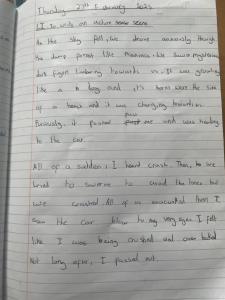 Thursday 27th February 2025
LI To write an action scene
As the sky fell, we drove anxiously though
the damp forest like Maniacs. We saw a mysterious
dark figure limbering towards us. It was grunting
like a hog and it's horns were the size
of a and it was charging towards us.
Furiously, it pushed me and was heading
to the car.
All of a sudden, I heard crash. Then, to we
had to swerve to avoid the trees but
we crashed. All of us evacuated then I
saw the car blow to my very eyes. I felt
like I was being crushed and
Not long after, I passed out.